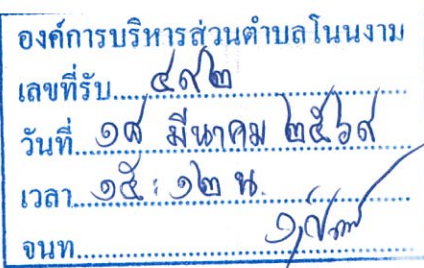 องค์การบริหารส่วนตำบลโนนงาม
เลขที่รับ.... ๔๙๒
วันที่ ๑๘ มีนาคม ๒๕๖๙
เวลา ๑๕ : ๑๒ น.
จนท.